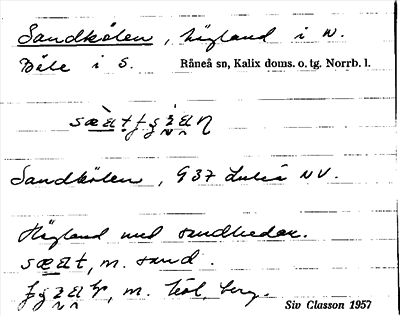 Sandkölen, högland i N.
Böle i S. Råneå sn, Kalix doms. o. tg. Norrb. l.
Sandkölen, G37 Luleå NV.
Högland med sandhedar.
m. sand.
m. köl, berg.
Siv Classon 1957